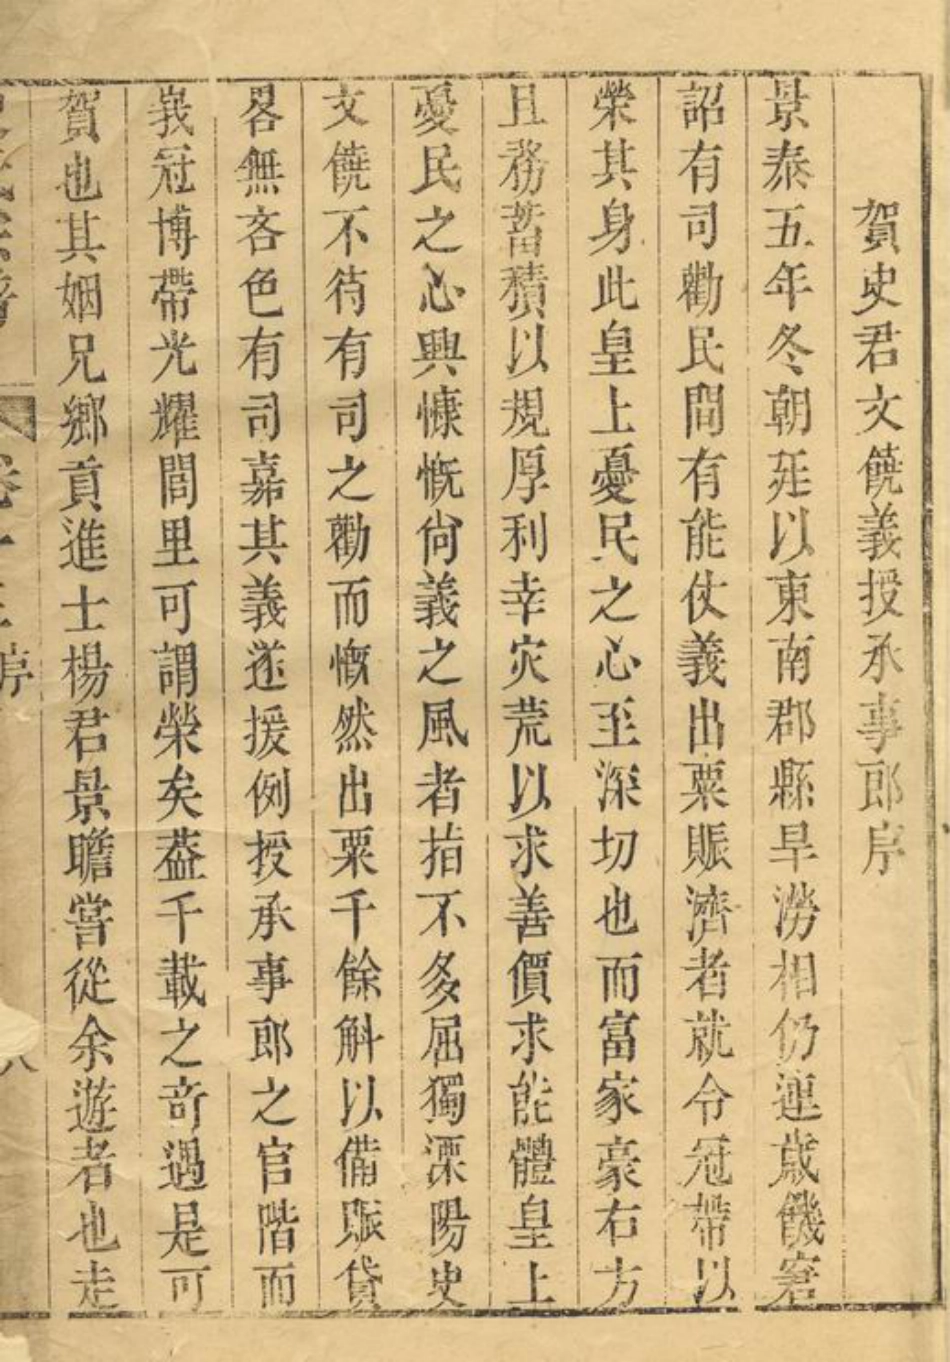 賀史君文饒義授承事郎序
景泰五年冬朝廷以東南郡縣旱澇相仍連歲饑窘
詔有司勸民間有能仗義出粟賑濟者就令冠帶以
榮其身此皇上憂民之心至深切也而富家豪右方
且務蓄積以規厚利幸灾荒以求善價求能體皇上
憂民之心興慷慨尙義之風者指不多屈獨溧陽史
文饒不待有司之勸而慨然出粟千餘斛以備賑貸
畧無吝色有司嘉其義遂援例授承事郎之官階而
峩冠博帶光耀閭里可謂榮矣葢千載之奇遇是可
賀也其姻兄鄉貢進士楊君景瞻嘗從余遊者也走
序
八